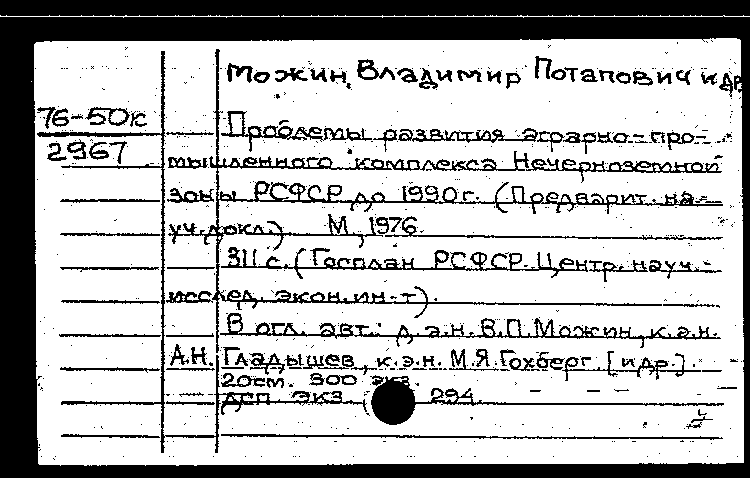 Можин, Владимир Потапович и др
76-50к
2967
Проблемы развития аграрно-про-
мышленного комплекса Нечерноземной
зоны РСФСР до 1990 г. (Предварит. на-
уч. докл.) М., 1976.
311 с. (Госплан РСФСР. Центр. науч.-
исслед. экон. ин-т).
В огл. авт.: д.э.н. В.П. Можин, к.э.н.
А.Н. Гладышев, к.э.н. М.Я. Гохберг. [и др.].
20см. 300 экз.
ДСП экз. ( 294.